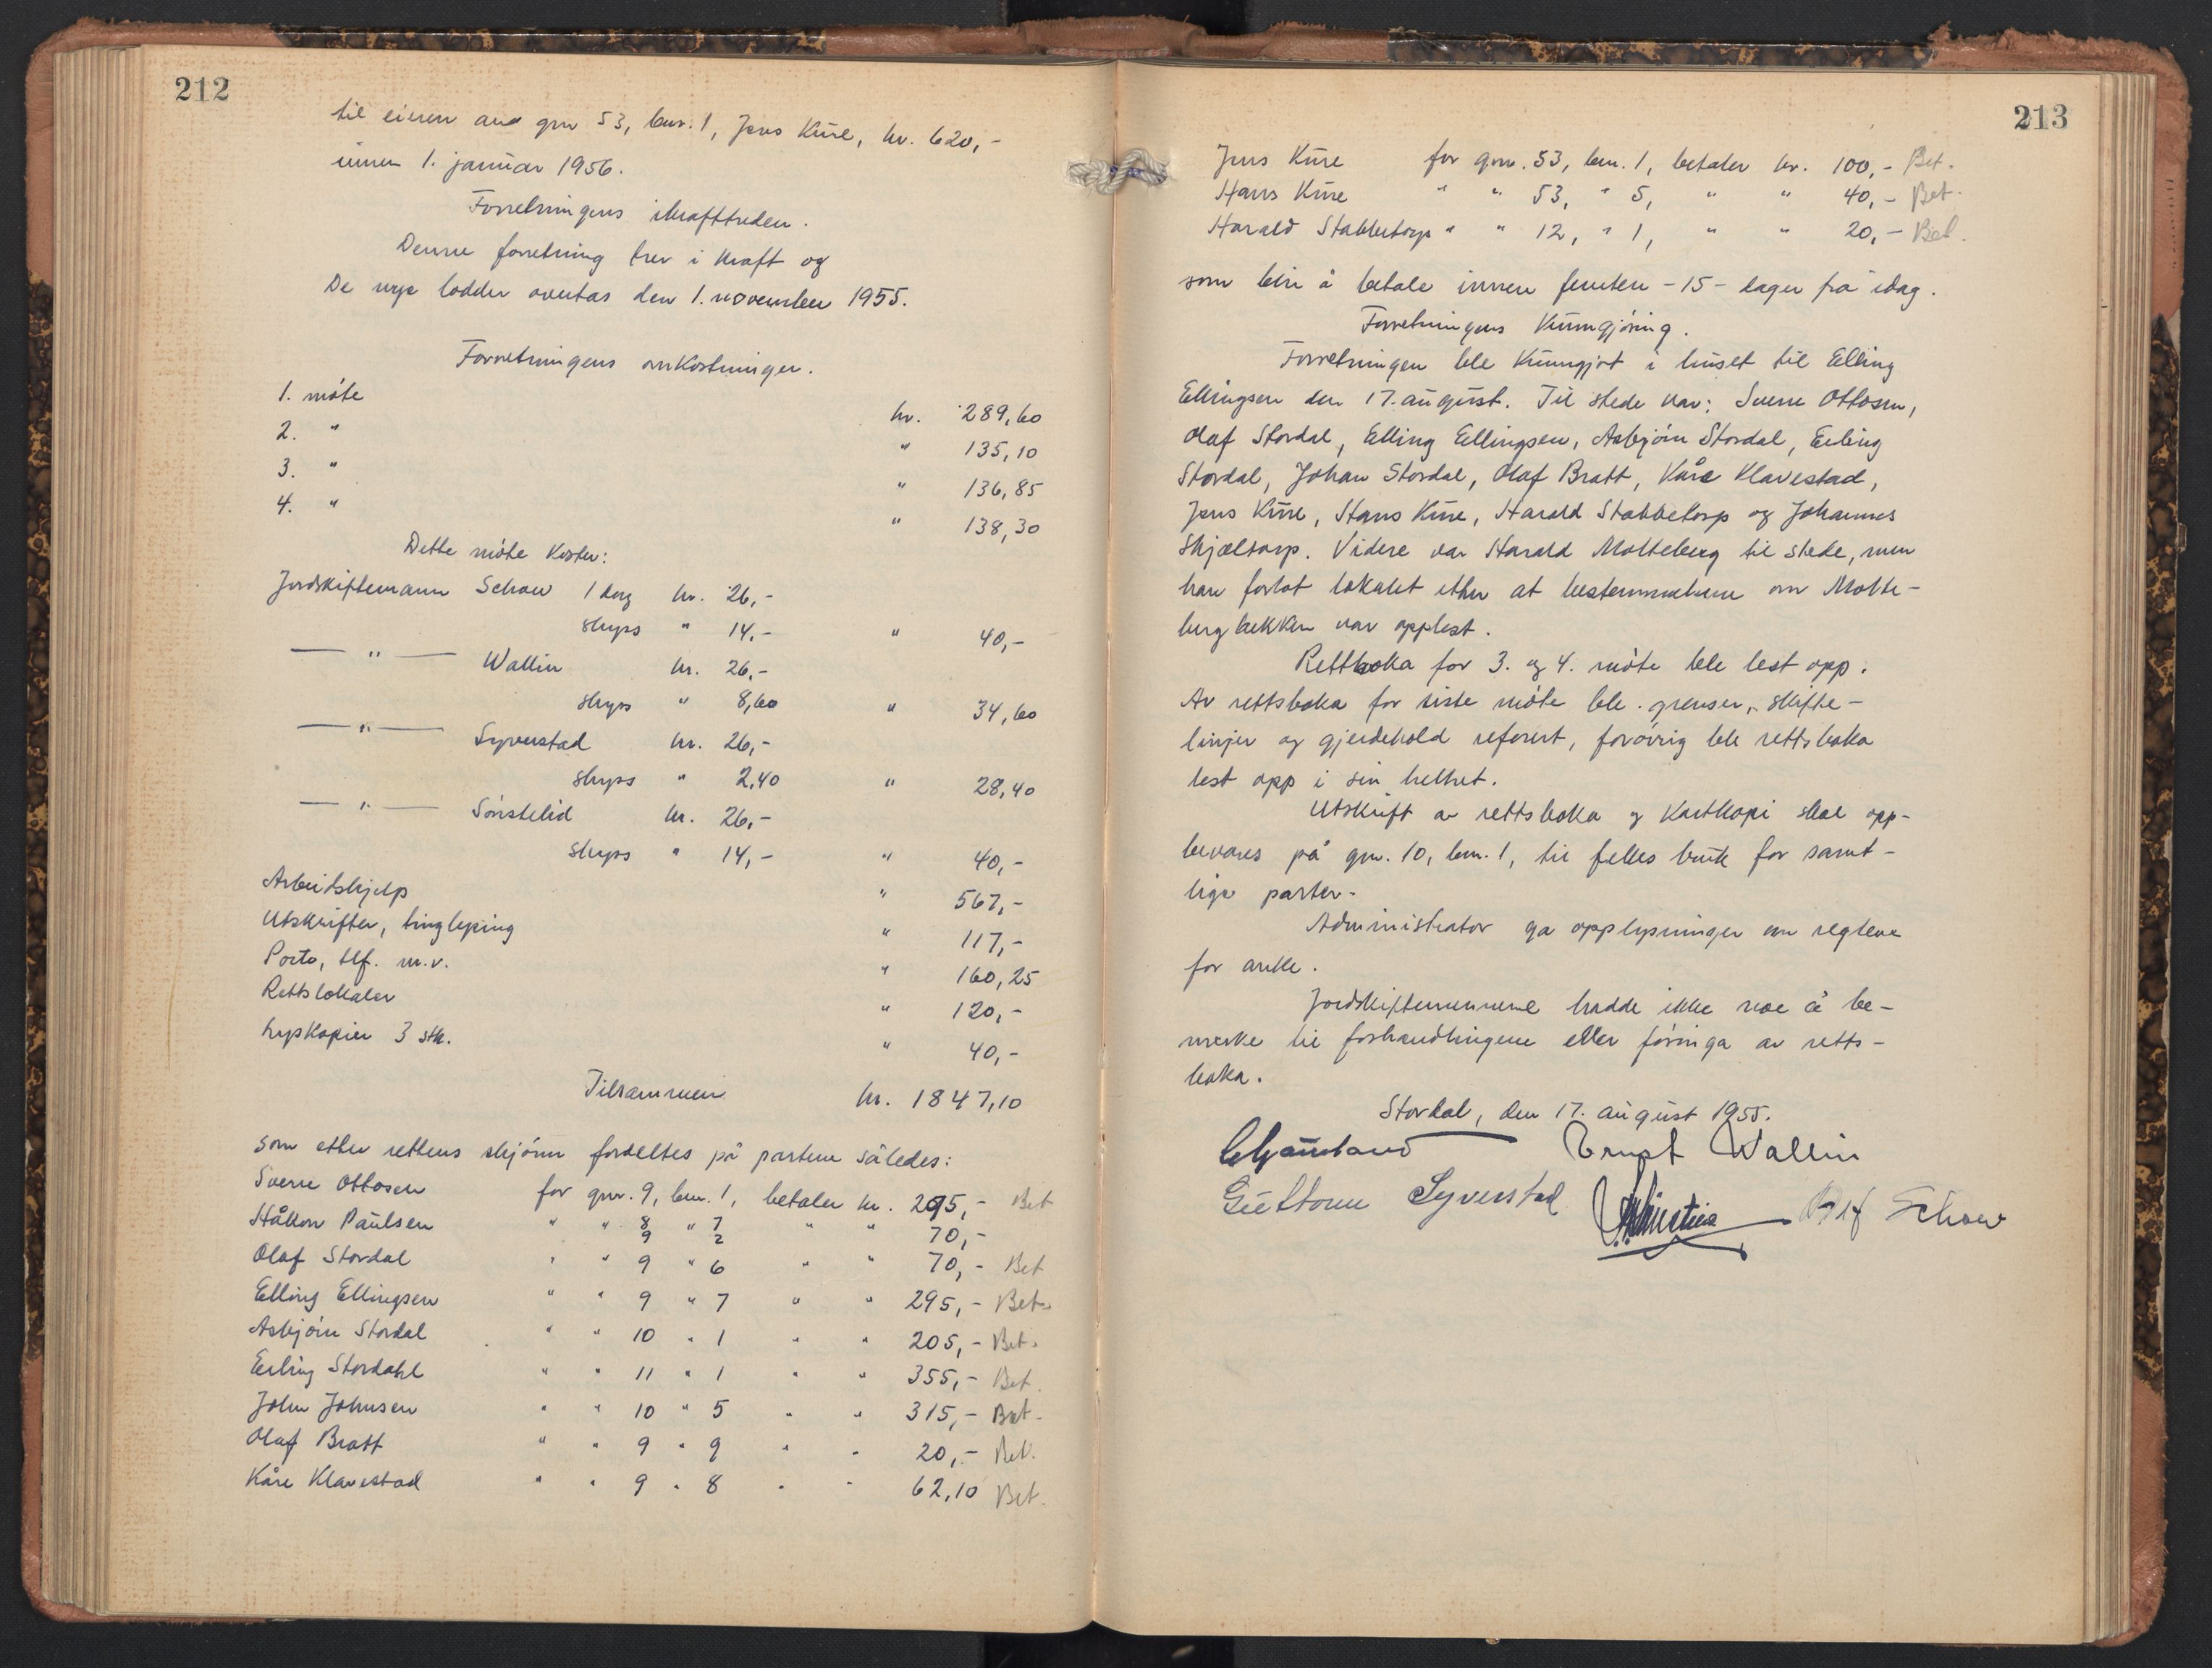 212
til eieren av gnr 53, bnr. 1, Jens Kure, kr. 620,-
innen 1. januar 1956.
Forretningens ikrafttreden.
Denne forretning trer i kraft og
De nye lodder overtas den 1. november 1955.
Forretningens omkostninger.
1. møte kr. 289,60
2. " " 135,10
3. " " 136,85
4. " " 138,30
Dette møte koster:
Jordskiftemann Schou 1 dag kr. 26,-
skyss " 14,- " 40,-
— " — Wallin kr. 26,-
skyss " 8,60 " 34,60
— " — Syverstad kr. 26,-
skyss " 2,40 " 28,40
— " — Sønstelid kr. 26,-
skyss " 14,- " 40,-
Arbeidshjelp " 567,-
Utskrifter, tinglysing " 117,-
Porto, tlf. m.v. " 160,25
Rettslokaler " 120,-
Lyskopier 3 stk. " 40,-
Tilsammen kr. 1847,10
som etter rettens skjønn fordeltes på partene således:
Sverre Ottosen for gnr. 9, bnr. 1, betaler kr. 295,- Bet
Håkon Paulsen " " 8 " 7 " " 70,-
9 2
Olaf Stordal " " 9 " 6 " " 70,- Bet
Elling Ellingsen " " 9 " 7 " " 295,- Bet.
Asbjørn Stordal " " 10 " 1 " " 205,- Bet.
Erling Stordahl " " 11 " 1 " " 355,- Bet.
John Johnsen " " 10 " 5 " " 315,- Bet.
Olaf Bratt " " 9 " 9 " " 20,- Bet.
Kåre Klavestad " " 9 " 8 " " 62,10 Bet.
213
Jens Kure for gnr. 53, bnr. 1, betaler kr. 100,- Bet.
Hans Kure " " 53, " 5, " " 40,- Bet.
Harald Stabbetorp " " 12, " 1, " " 20,- Bet.
som blir å betale innen femten -15- dager fra idag.
Forretningens kunngjøring.
Forretningen ble kunngjort i huset til Elling
Ellingsen den 17. august. Til stede var: Sverre Ottosen,
Olaf Stordal, Elling Ellingsen, Asbjørn Stordal, Erling
Stordal, Johan Stordal, Olaf Bratt, Kåre Klavestad,
Jens Kure, Hans Kure, Harald Stabbetorp og Johannes
Skjeltorp. Videre var Harald Motteberg til stede, men
han forlot lokalet etter at bestemmelsene om Motte-
bergbekken var opplest.
Rettboka for 3. og 4. møte ble lest opp.
Av rettsboka for siste møte ble grenser, skifte-
linjer og gjerdehold referert, forøvrig ble rettsboka
lest opp i sin helhet.
Utskrift av rettsboka og kartkopi skal opp-
bevares på gnr. 10, bnr. 1, til felles bruk for samt-
lige parter.
Administrator ga opplysninger om reglene
for anke.
Jordskiftemennene hadde ikke noe å be-
merke til forhandlingene eller føringa av retts-
boka.
Stordal, den 17. august 1955.
Ernst Wallin
Guttorm Syverstad Schou